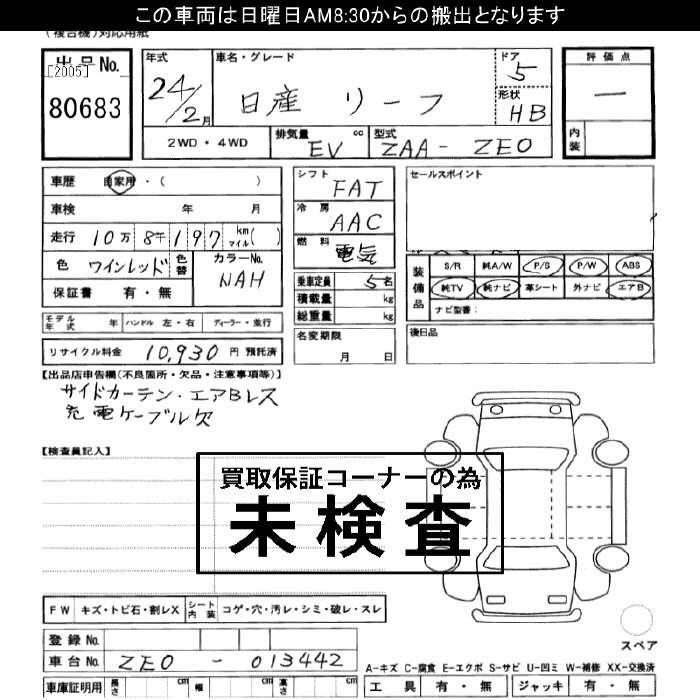 この車両は日曜日AM8:30からの搬出となります
(複合機)対応用紙
出品No.
[2005]
80683
年式
24/2月
車名・グレード
日産 リーフ
ドア
5
形状
HB
評価点
―
内装
2WD・4WD
排気量 cc
EV
型式
ZAA-ZE0
車歴 自家用・( )
車検 年 月
走行 10万 8千 197 km マイル( )
色 ワインレッド 色替
カラーNo.
NAH
保証書 有・無
モデル年式 年 ハンドル 左・右 ディーラー・並行
リサイクル料金 10,930 円 預託済
シフト
FAT
冷房
AAC
燃料
電気
乗車定員 5名
積載量 kg
総重量 kg
名変期限
月 日
セールスポイント
装備品
S/R 純A/W P/S P/W ABS
純TV 純ナビ 革シート 外ナビ エアB
ナビ型番:
後日品
【出品店申告欄(不良箇所・欠品・注意事項等)】
サイドカーテン・エアBレス
充電ケーブル欠
【検査員記入】
買取保証コーナーの為
未検査
FW キズ・トビ石・割レX シート内装 コゲ・穴・汚レ・シミ・破レ・スレ
登録No.
車台No. ZE0-013442
車庫証明用 長さ cm 幅 cm 高さ cm
スペア
A-キズ C-腐食 E-エクボ S-サビ U-凹ミ W-補修 XX-交換済
工具 有・無 ジャッキ 有・無